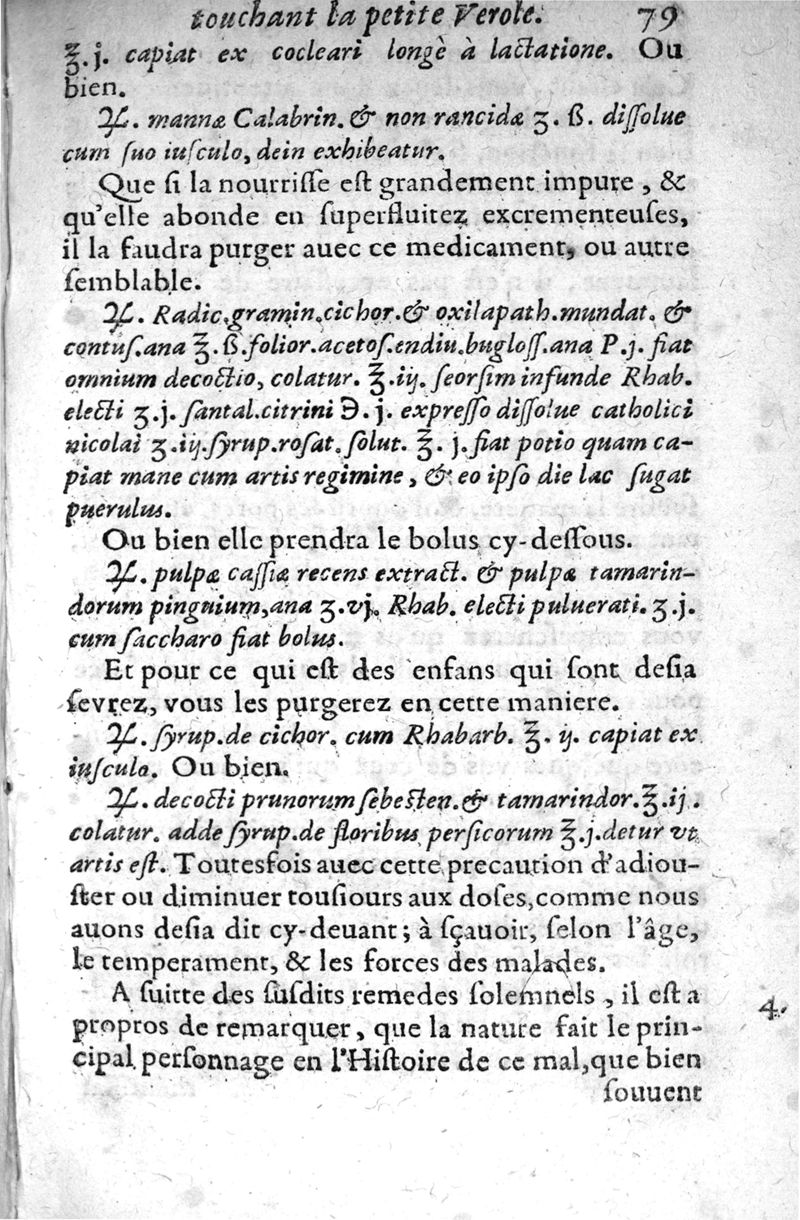 touchant la petite Verole. 79
℥.j. capiat ex cocleari longè à lactatione. Ou
bien.
♃. mannæ Calabrin. & non rancidæ ʒ. ß. diſſolue
cum ſuo iuſculo, dein exhibeatur.
Que ſi la nourriſſe eſt grandement impure, &
qu'elle abonde en ſuperfluitez excrementeuſes,
il la faudra purger auec ce medicament, ou autre
ſemblable.
♃. Radic.gramin.cichor.& oxilapath.mundat. &
contuſ.ana ℥.ß.folior.acetoſ.endiu.bugloſſ.ana P.j. fiat
omnium decoctio, colatur. ℥.iij. ſeorſim infunde Rhab.
electi ʒ.j. ſantal.citrini ℈.j. expreſſo diſſolue catholici
nicolai ʒ.iij.ſyrup.roſat.ſolut. ℥. j.fiat potio quam ca-
piat mane cum artis regimine, & eo ipſo die lac ſugat
puerulus.
Ou bien elle prendra le bolus cy-deſſous.
♃. pulpæ caſſiæ recens extract. & pulpæ tamarin-
dorum pinguium, ana ʒ.vj. Rhab. electi puluerati. ʒ.j.
cum ſaccharo fiat bolus.
Et pour ce qui eſt des enfans qui ſont deſia
ſevrez, vous les purgerez en cette maniere.
♃. ſyrup.de cichor. cum Rhabarb. ℥. ij. capiat ex
iuſculo. Ou bien.
♃. decocti prunorum ſebeſten.& tamarindor.℥.ij.
colatur. adde ſyrup.de floribus perſicorum ℥.j.detur vt
artis eſt. Toutesfois auec cette precaution d'adiou-
ſter ou diminuer touſiours aux doſes, comme nous
auons deſia dit cy-deuant; à ſçauoir, ſelon l'âge,
le temperament, & les forces des malades.
A ſuitte des ſuſdits remedes ſolemnels, il eſt a 4.
propros de remarquer, que la nature fait le prin-
cipal perſonnage en l'Hiſtoire de ce mal, que bien
ſouuent